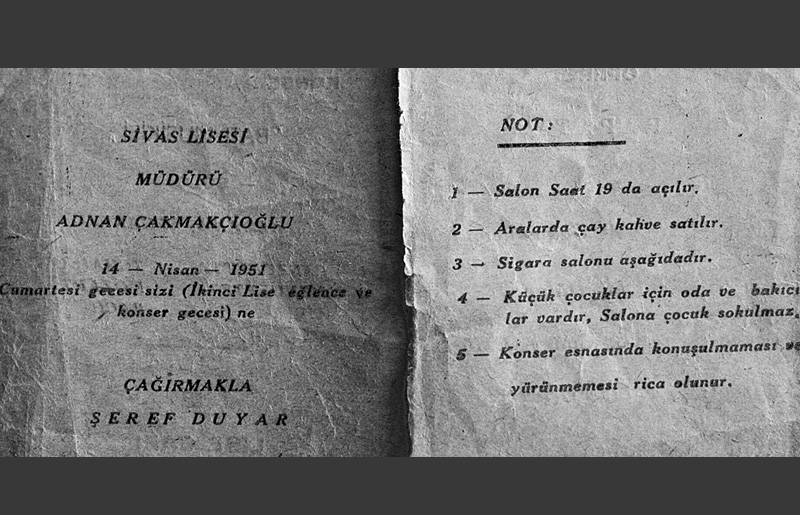 SİVAS LİSESİ
MÜDÜRÜ
ADNAN ÇAKMAKÇIOĞLU
14 — Nisan — 1951
Cumartesi gecesi sizi (İkinci Lise eğlence ve
konser gecesi) ne
ÇAĞIRMAKLA
ŞEREF DUYAR
NOT:
1 — Salon Saat 19 da açılır.
2 — Aralarda çay kahve satılır.
3 — Sigara salonu aşağıdadır.
4 — Küçük çocuklar için oda ve bakıcı
lar vardır, Salona çocuk sokulmaz.
5 — Konser esnasında konuşulmaması ve
yürünmemesi rica olunur.